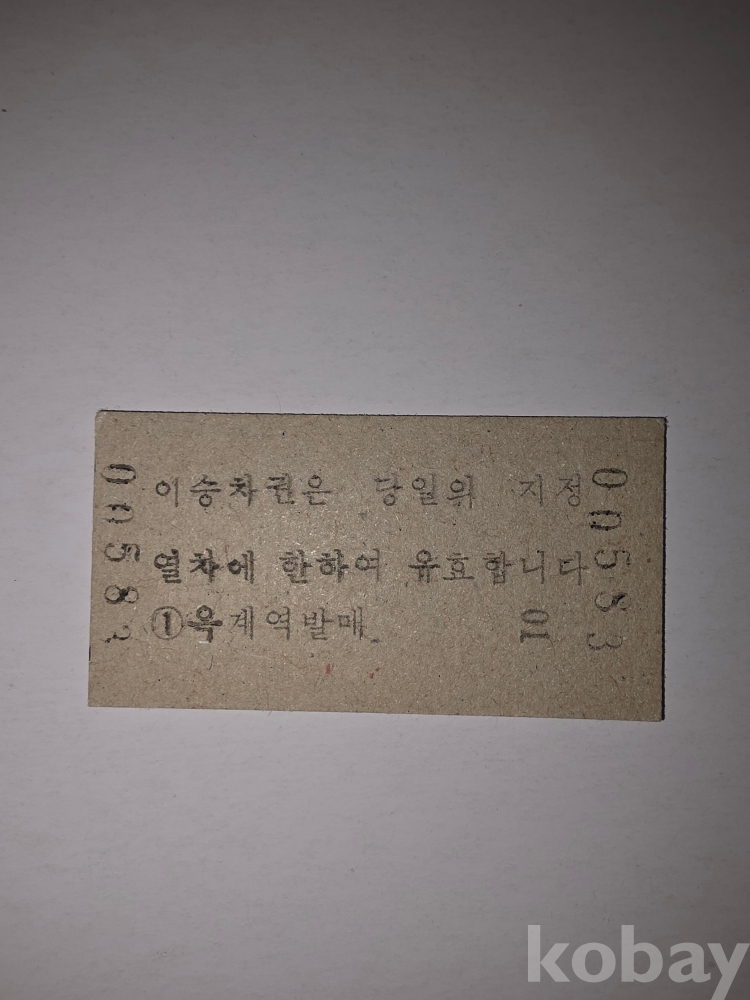 이승차권은 당일의 지정
열차에 한하여 유효합니다
①옥계역발매
01
00583
00583
kobay